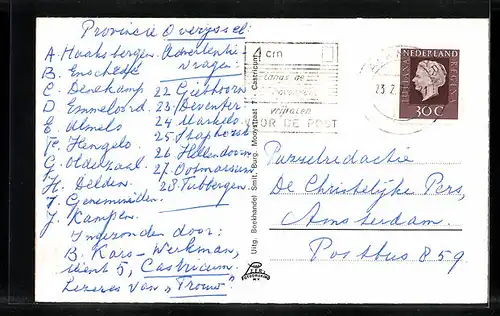 Provincie Overyssel:
A. Haaksbergen. Advertentie-
B. Enschede vragen:
C. Denekamp 22 Giethoorn
D. Emmeloord. 23 Deventer
E. Almelo 24 Markelo
F. Hengelo 25 Staphorst
G. Oldenzaal 26 Hellendoorn
H. Delden 27 Ootmarsum
I. Genemuiden 28 Tubbergen.
J. Kampen
Ingezonden door:
B. Kars-Werkman,
5, Castricum.
Lezeres van "Trouw"
Uitg. Boekhandel Smit, Burg. Mooystraat 7 - Castricum
4 cm
langs de
bovenrand
vrijlaten
VOOR DE POST
23.2
NEDERLAND
JULIANA REGINA
30C
Puzzelredactie
De Christelijke Pers,
Amsterdam.
Postbus 859